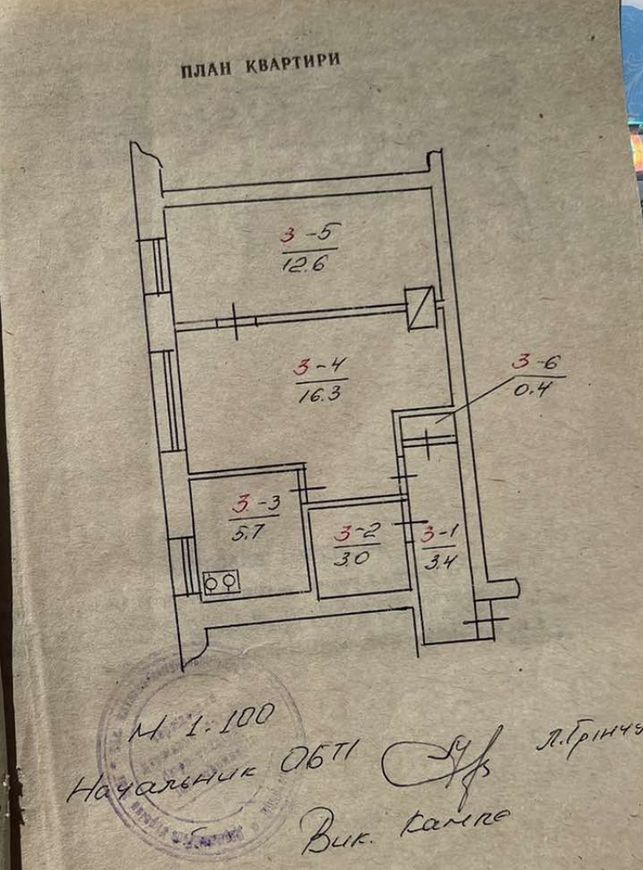 ПЛАН КВАРТИРИ
3-5
12.6
3-4
16.3
3-6
0.4
3-3
5.7
3-2
3.0
3-1
3.4
М 1:100
Начальник ОБТІ
Вик.